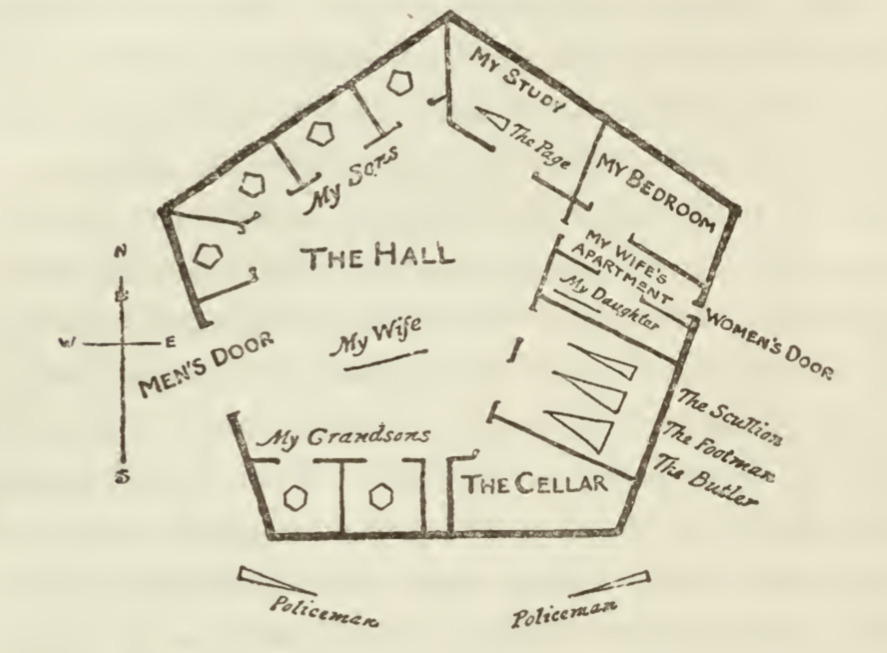 MY STUDY
The Page
MY BEDROOM
My Sons
N
W E
S
THE HALL
MY WIFE'S
APARTMENT
My Daughter
WOMEN'S DOOR
MEN'S DOOR
My Wife
The Scullion
The Footman
The Butler
My Grandsons
THE CELLAR
Policeman
Policeman